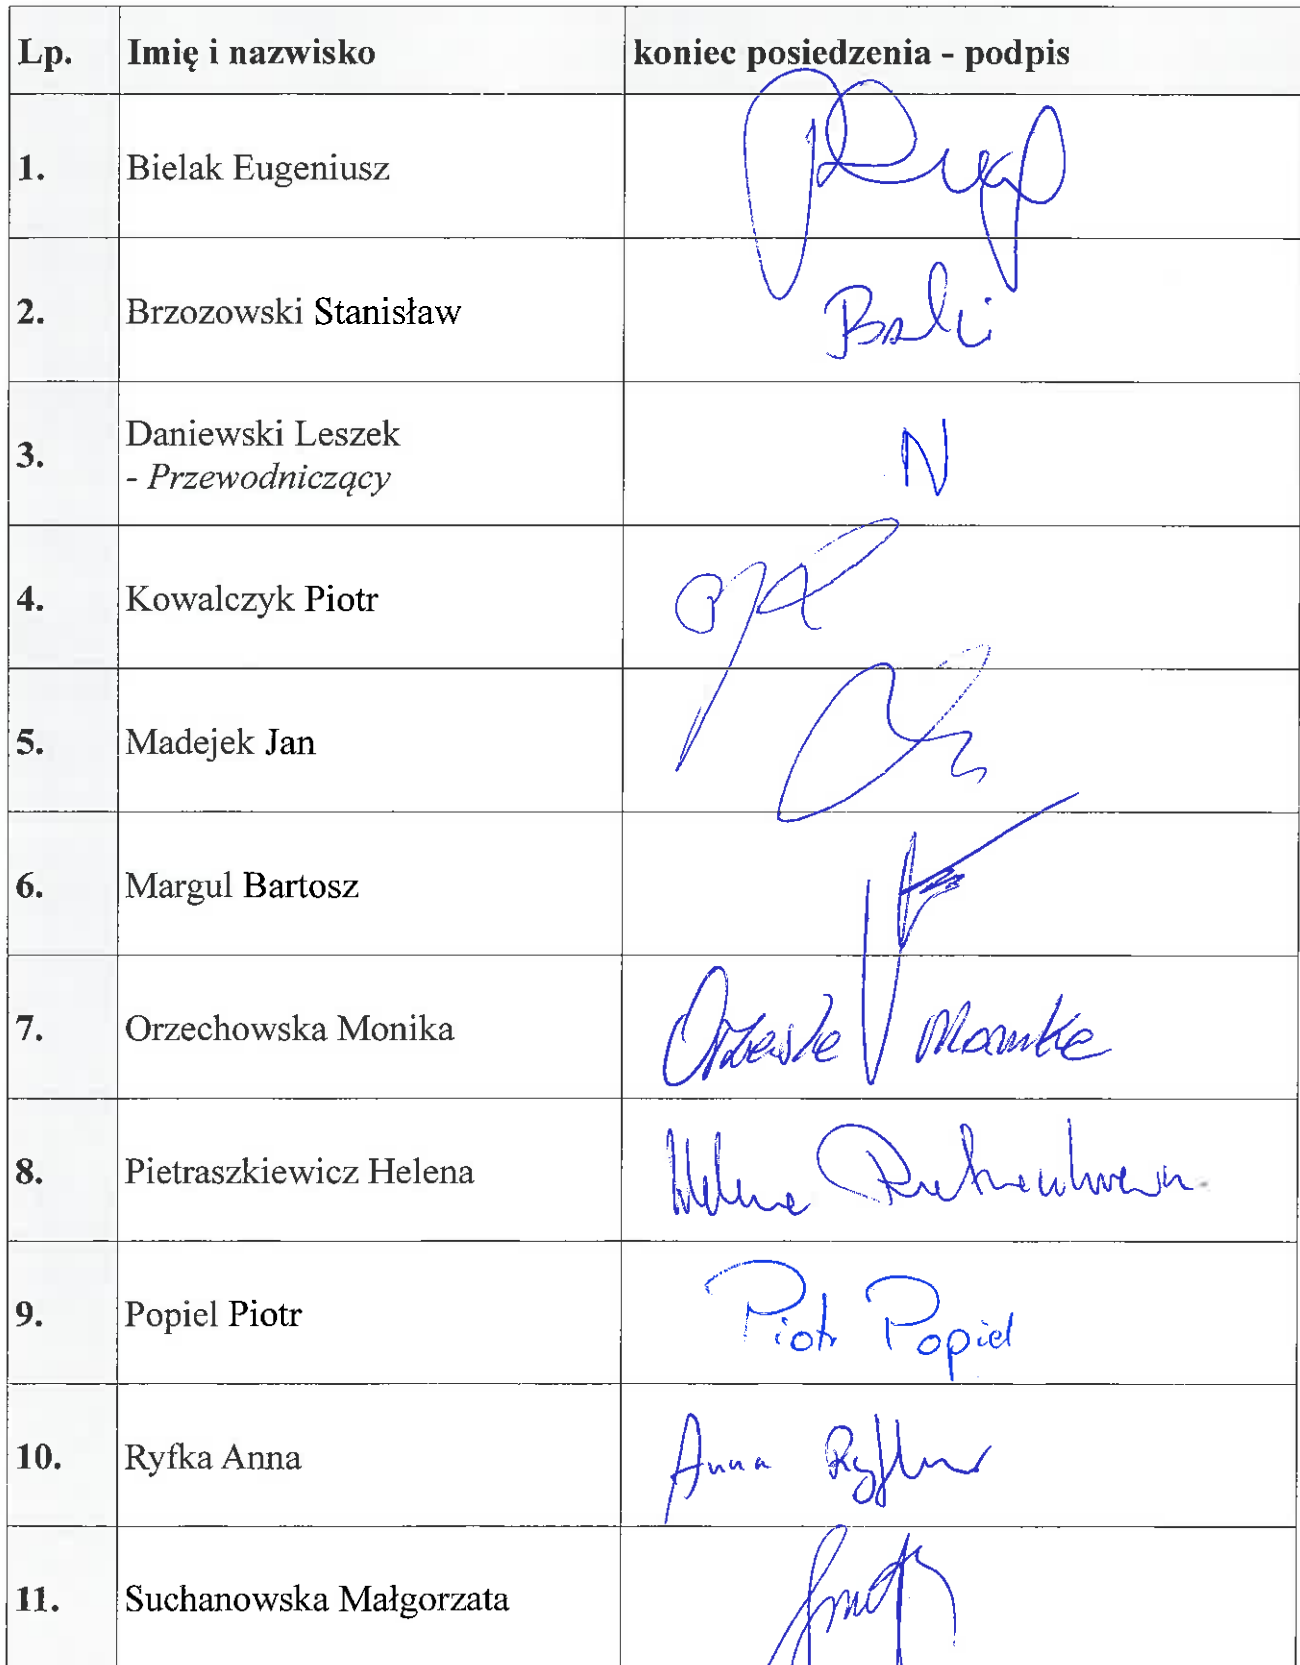 Lp. Imię i nazwisko koniec posiedzenia - podpis
1. Bielak Eugeniusz
2. Brzozowski Stanisław
3. Daniewski Leszek
- Przewodniczący
N
4. Kowalczyk Piotr
5. Madejek Jan
6. Margul Bartosz
7. Orzechowska Monika
8. Pietraszkiewicz Helena Helena
9. Popiel Piotr Piotr Popiel
10. Ryfka Anna Anna Ryfka
11. Suchanowska Małgorzata